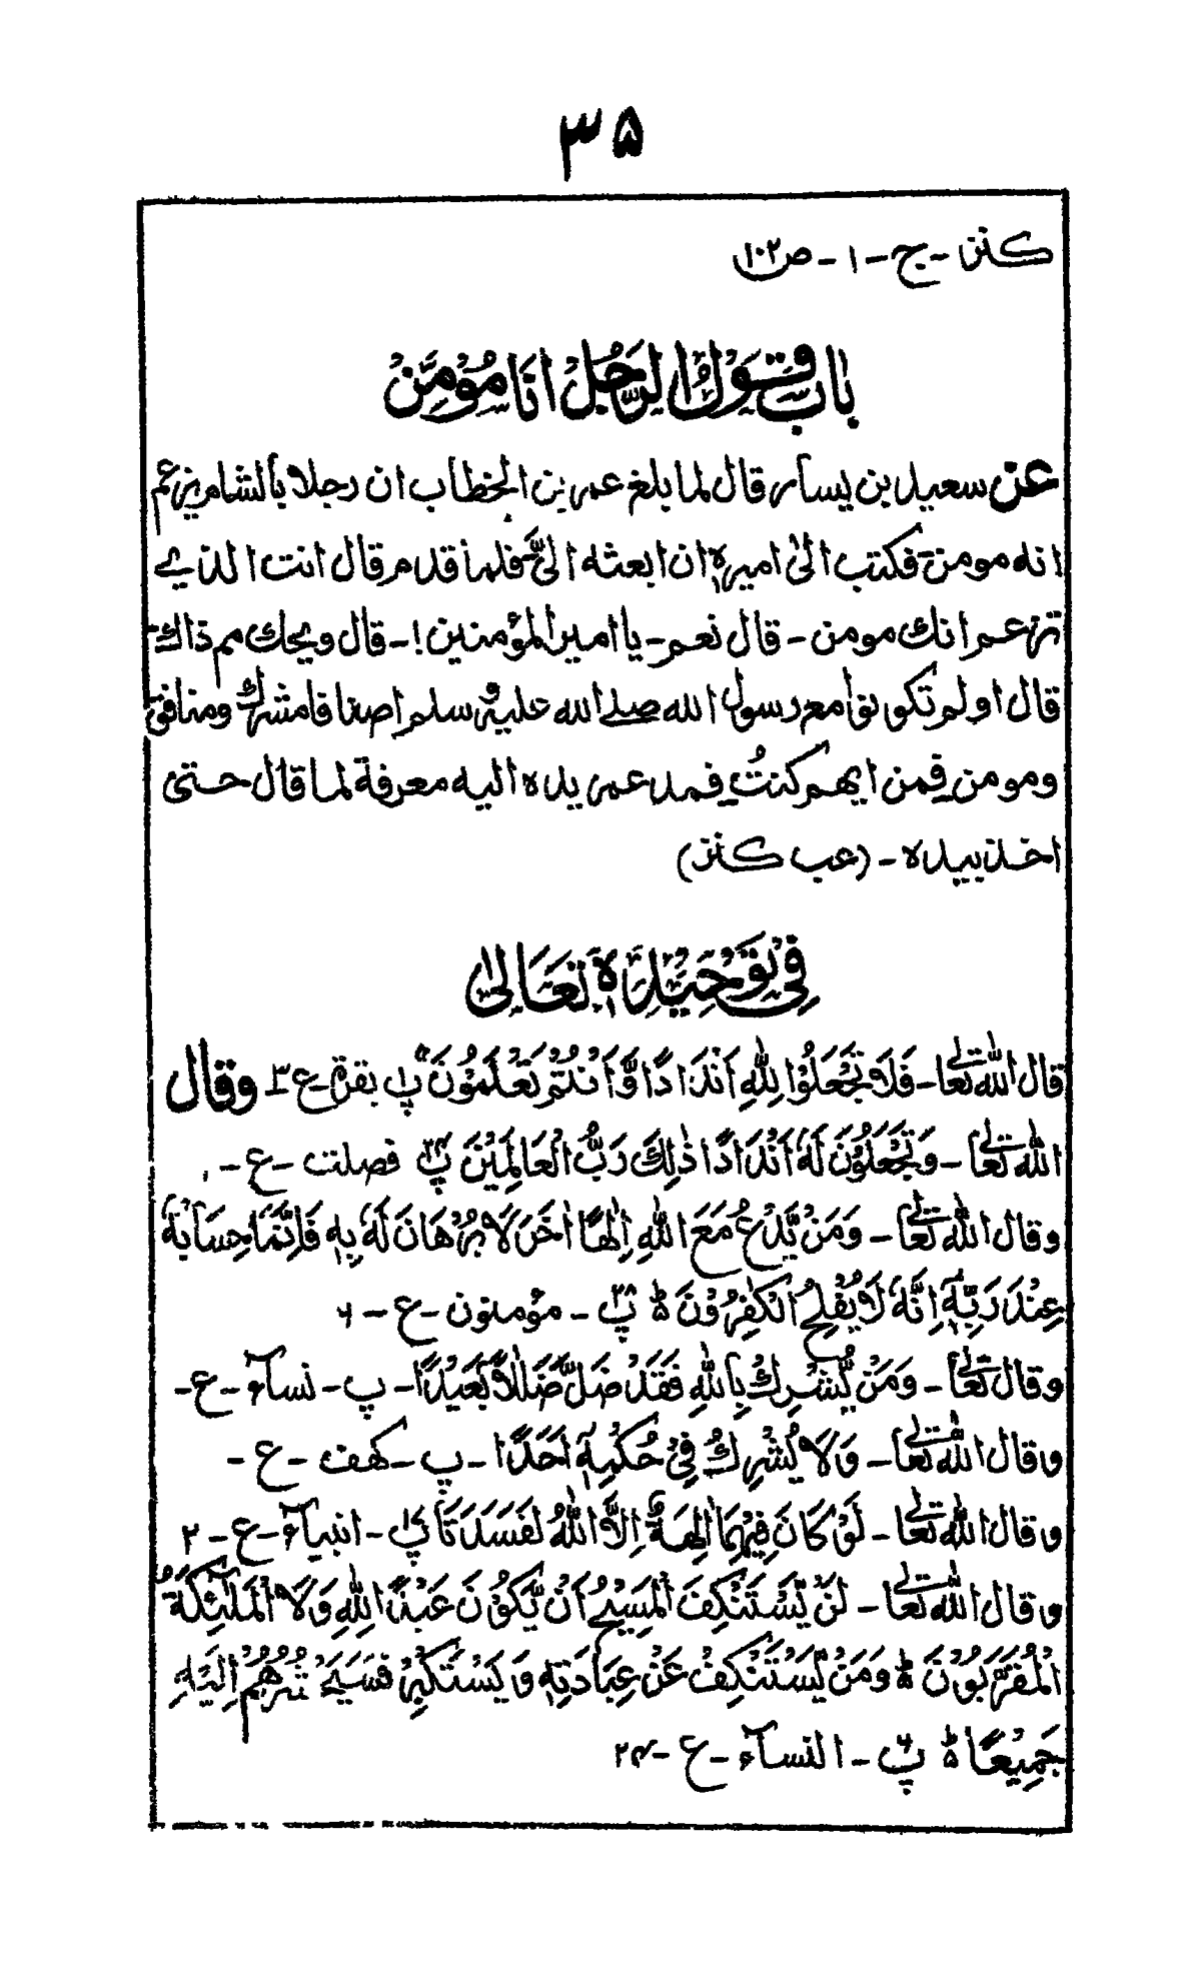 ۳۵
کنز - ج - ۱ - ص ۱۰۲
بابُ قَوْلِ الرَّجُلِ اَنَا مُؤْمِنٌ
عن سعيد بن يسار قال لما بلغ عمر بن الخطاب ان رجلا بالشام يزعم
انه مومن فكتب الىٰ اميره ان ابعثه الىَّ فلما قدم قال انت الذي
تزعم انك مومن - قال نعم - يا امير المؤمنين! - قال ويحك مم ذاك
قال اولم تكونوا مع رسول الله صلے الله عليه وسلم اصنافا مشرك ومنافق
ومومن فمن ايهم كنتُ فمد عمر يده اليه معرفة لما قال حتى
اخذ بيده - (عب كنز)
فِى تَوْحِيْدِهٖ تَعَالىٰ
قال الله تعالى - فَلَا تَجْعَلُوْا لِلّٰهِ اَنْدَادًا وَّاَنْتُمْ تَعْلَمُوْنَ پ۱ بقرة - ع ۳ وقال
الله تعالى - وَتَجْعَلُوْنَ لَهٗ اَنْدَادًا ذٰلِكَ رَبُّ الْعَالَمِيْنَ پ۲۴ فصلت - ع - ۱
وقال الله تعالى - وَمَنْ يَّدْعُ مَعَ اللّٰهِ اِلٰهًا اٰخَرَ لَا بُرْهَانَ لَهٗ بِهٖ فَاِنَّمَا حِسَابُهٗ
عِنْدَ رَبِّهٖ اِنَّهٗ لَا يُفْلِحُ الْكٰفِرُوْنَ ؕ پ۱۸ - مؤمنون - ع - ۶
وقال تعالى - وَمَنْ يُّشْرِكْ بِاللّٰهِ فَقَدْ ضَلَّ ضَلٰلًا بَعِيْدًا - پ - نسآء - ع -
وقال الله تعالى - وَلَا يُشْرِكُ فِىْ حُكْمِهٖٓ اَحَدًا - پ - كهف - ع -
وقال الله تعالى - لَوْ كَانَ فِيْهِمَا اٰلِهَةٌ اِلَّا اللّٰهُ لَفَسَدَتَا پ۱۷ - انبيآء - ع - ۲
وقال الله تعالى - لَنْ يَّسْتَنْكِفَ الْمَسِيْحُ اَنْ يَّكُوْنَ عَبْدًا لِلّٰهِ وَلَا الْمَلٰٓئِكَةُ
الْمُقَرَّبُوْنَ ؕ وَمَنْ يَّسْتَنْكِفْ عَنْ عِبَادَتِهٖ وَيَسْتَكْبِرْ فَسَيَحْشُرُهُمْ اِلَيْهِ
جَمِيْعًا ؕ پ۶ - النسآء - ع - ۲۴